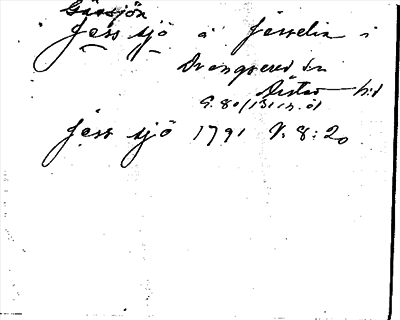 Gässjön
Jess sjö å Jesselin i
Drängsered sn
Årstad hd
G. 80/131 n. öl
Jess sjö 1791 V. 8:20